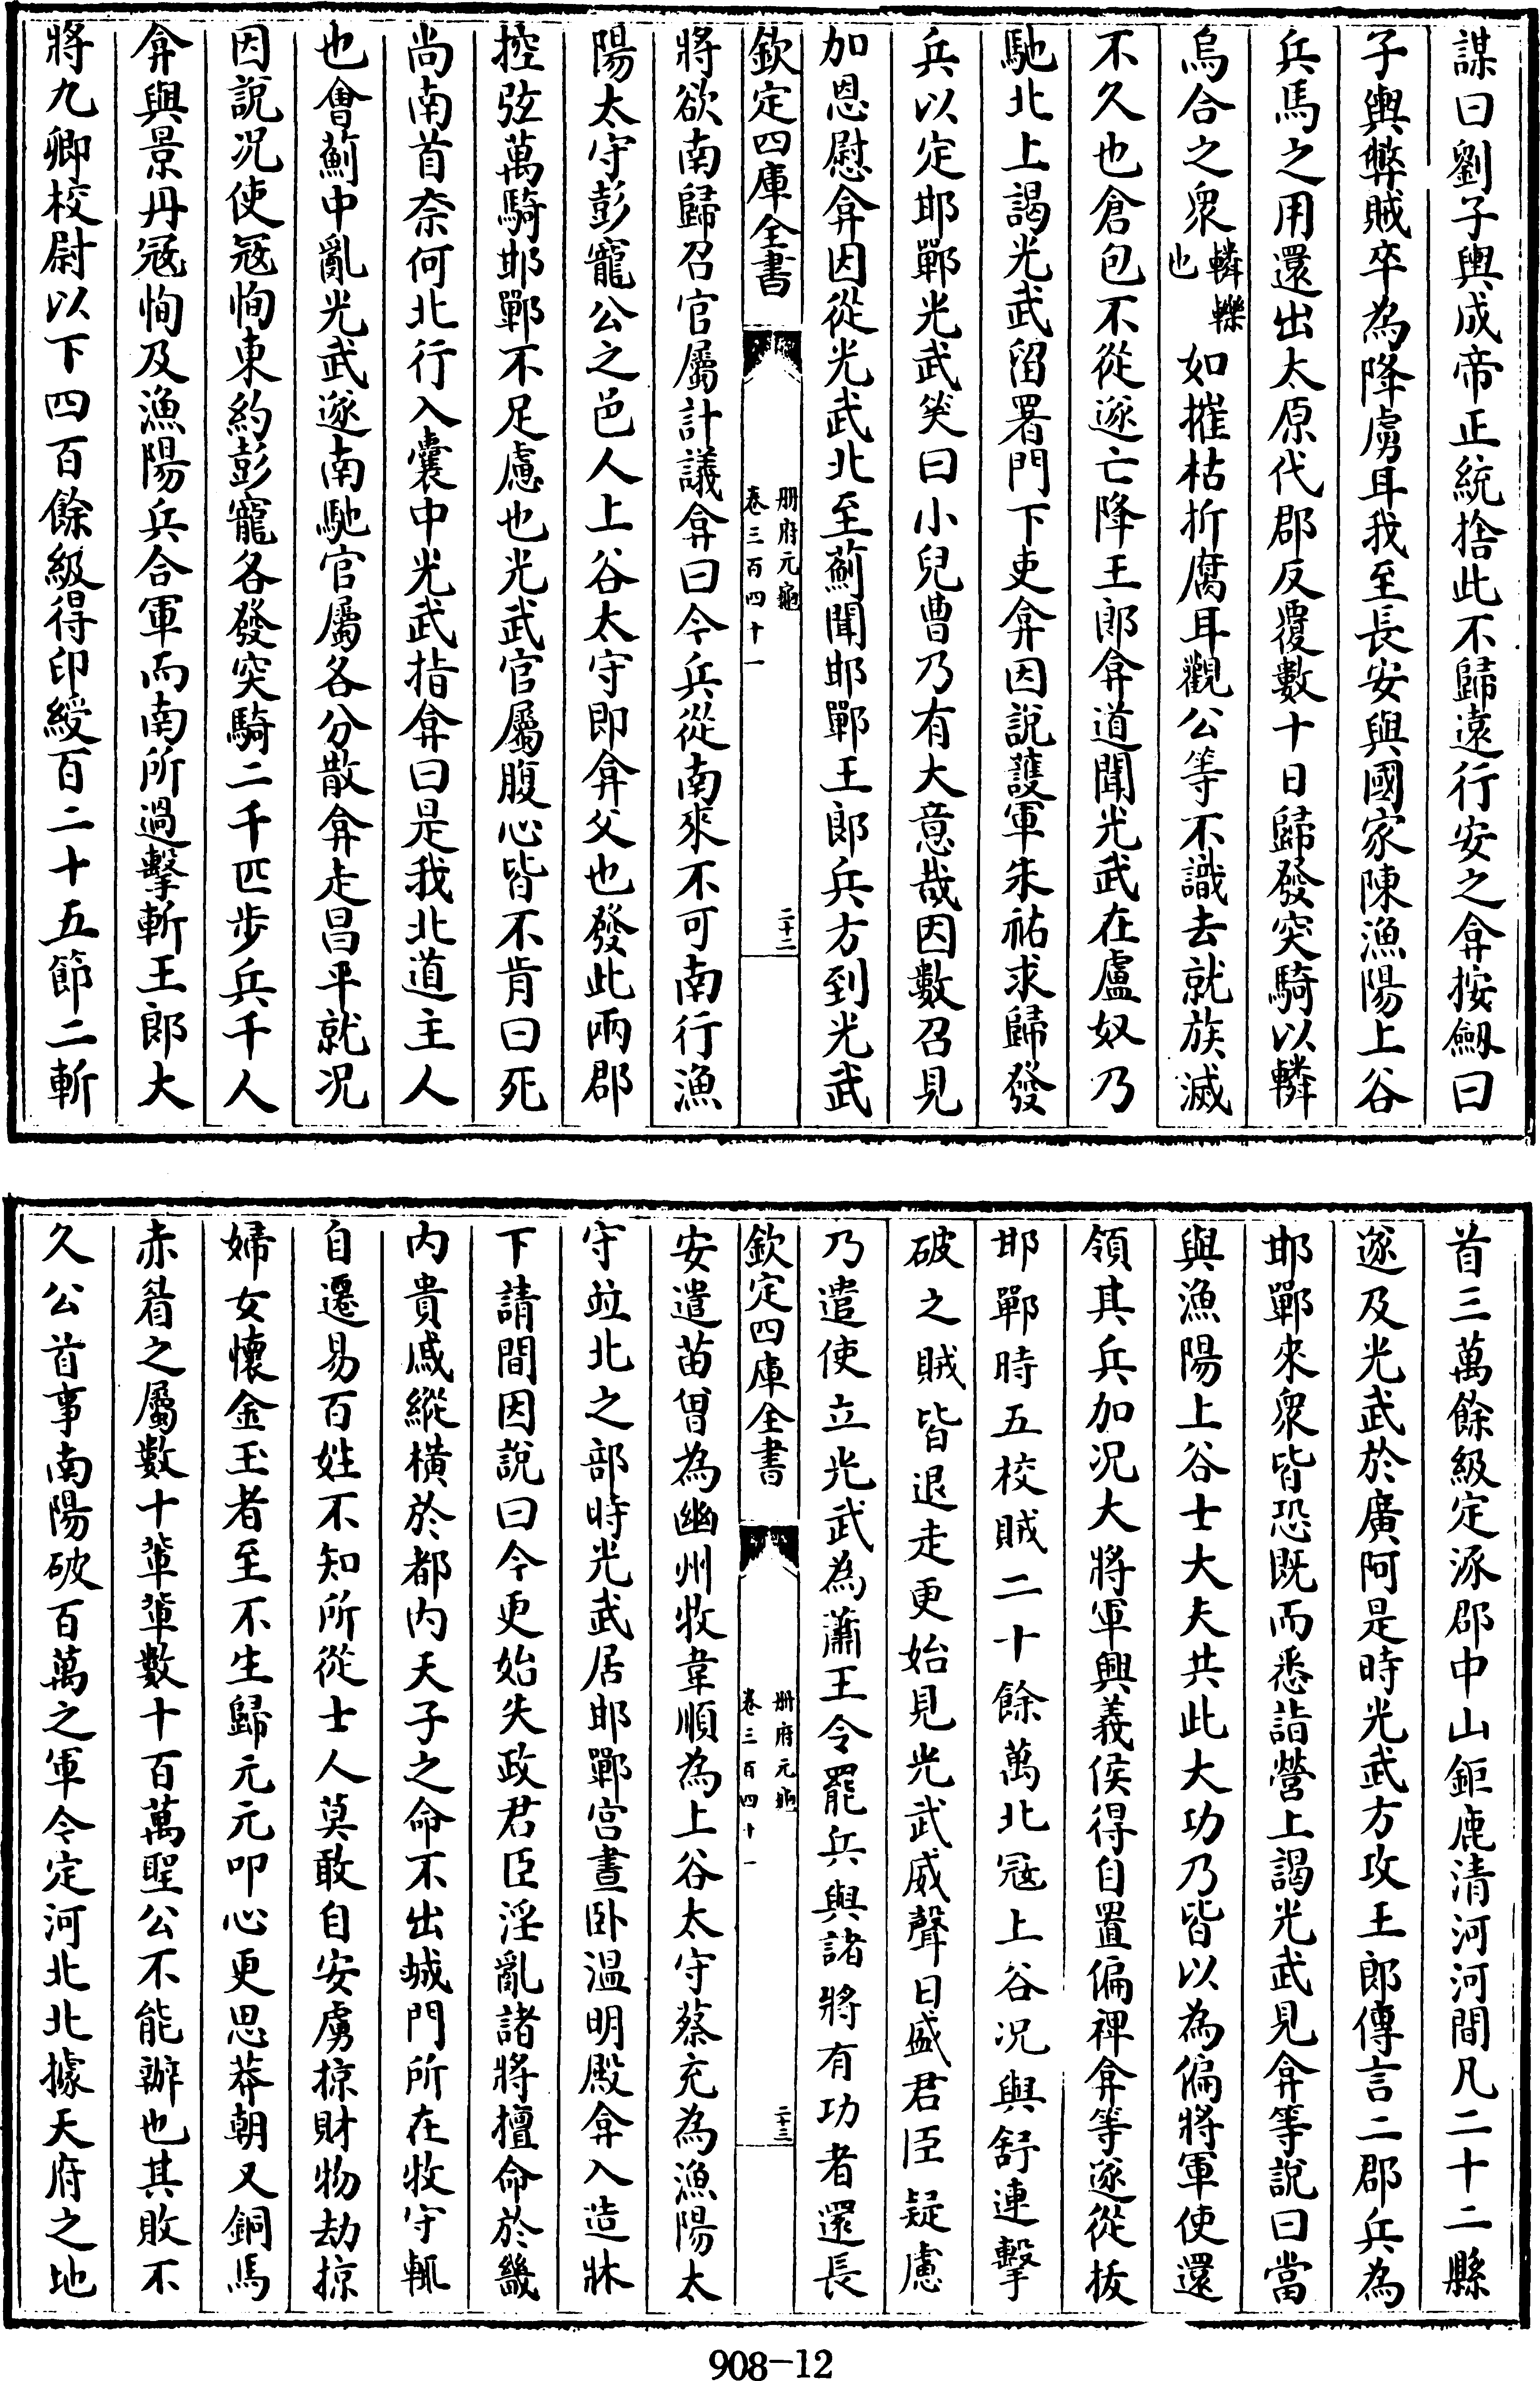 謀曰劉子輿成帝正統捨此不歸遠行安之弇按劒曰
子輿弊賊卒為降虜耳我至長安與國家陳漁陽上谷
兵馬之用還出太原代郡反覆數十日歸發突騎以轔
烏合之衆轔轢也如摧枯折腐耳觀公等不識去就族滅
不久也倉包不從遂亡降王郎弇道聞光武在盧奴乃
馳北上謁光武留署門下吏弇因說護軍朱祐求歸發
兵以定邯鄲光武笑曰小兒曹乃有大意哉因數召見
加恩慰弇因從光武北至薊聞邯鄲王郎兵方到光武
欽定四庫全書
冊府元龜
卷三百四十一
二十二
將欲南歸召官屬計議弇曰今兵從南來不可南行漁
陽太守彭寵公之邑人上谷太守即弇父也發此兩郡
控弦萬騎邯鄲不足慮也光武官屬腹心皆不肯曰死
尚南首奈何北行入囊中光武指弇曰是我北道主人
也會薊中亂光武遂南馳官屬各分散弇走昌平就况
因說况使寇恂東約彭寵各發突騎二千匹步兵千人
弇與景丹寇恂及漁陽兵合軍而南所過擊斬王郎大
將九卿校尉以下四百餘級得印綬百二十五節二斬
首三萬餘級定涿郡中山鉅鹿清河河間凡二十二縣
遂及光武於廣阿是時光武方攻王郎傳言二郡兵為
邯鄲來衆皆恐既而悉詣營上謁光武見弇等說曰當
與漁陽上谷士大夫共此大功乃皆以為偏將軍使還
領其兵加况大將軍興義侯得自置偏裨弇等遂從拔
邯鄲時五校賊二十餘萬北寇上谷况與舒連擊
破之賊皆退走更始見光武威聲日盛君臣疑慮
乃遣使立光武為蕭王令罷兵與諸將有功者還長
欽定四庫全書
冊府元龜
卷三百四十一
二十三
安遣苗曾為幽州牧韋順為上谷太守蔡充為漁陽太
守竝北之部時光武居邯鄲宫晝卧温明殿弇入造牀
下請間因說曰今更始失政君臣淫亂諸將擅命於畿
内貴戚縱橫於都内天子之命不出城門所在牧守輒
自遷易百姓不知所從士人莫敢自安虜掠財物劫掠
婦女懷金玉者至不生歸元元叩心更思莽朝又銅馬
赤眉之屬數十輩輩數十百萬聖公不能辦也其敗不
久公首事南陽破百萬之軍今定河北北據天府之地
908-12